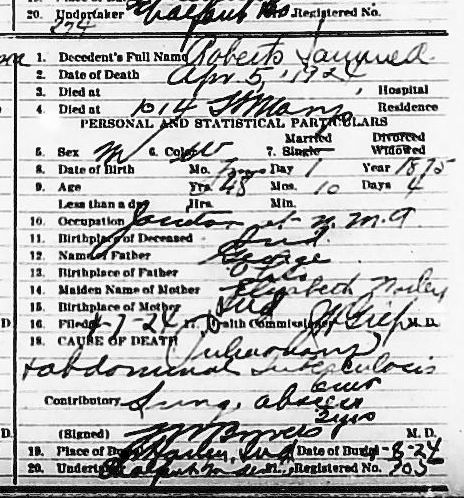 20. Undertaker Registered No.
274
1. Decedent's Full Name Roberts Samuel
2. Date of Death Apr. 5, 1924
3. Died at , Hospital
4. Died at 1014 St Marys Residence
PERSONAL AND STATISTICAL PARTICULARS
Married Divorced
5. Sex M 6. Color W 7. Single Widowed
8. Date of Birth Mo. Day 1 Year 1875
9. Age Yrs. 48 Mos. 10 Days 4
Less than a day Hrs. Min.
10. Occupation Janitor at Y.M.C.A
11. Birthplace of Deceased Ind.
12. Name of Father George
13. Birthplace of Father Ohio
14. Maiden Name of Mother Elizabeth
15. Birthplace of Mother Ind
16. Filed 4-7-24 17. Health Commissioner M. D.
18. CAUSE OF DEATH Pulmonary
+ abdominal tuberculosis
Contributory Lung, abscess
2 yrs
(Signed) M. D.
19. Place of Burial Ind Date of Burial 4-8-24
20. Undertaker Registered No. 305